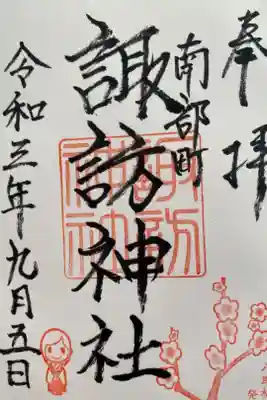 奉拝
南部町
諏訪神社
令和三年九月五日